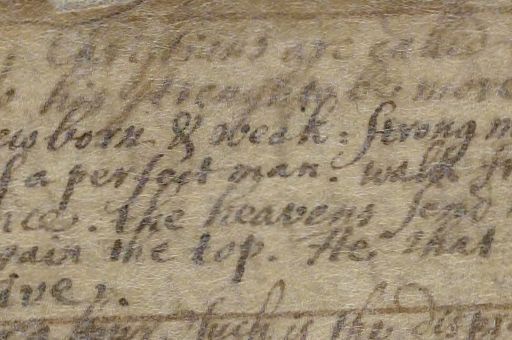 Christians are called
his strength to be more
ew born & weak: strong m
f a perfect man. walk fr
nce. The heavens send
gain the top. He that
ive r.
such is the disp